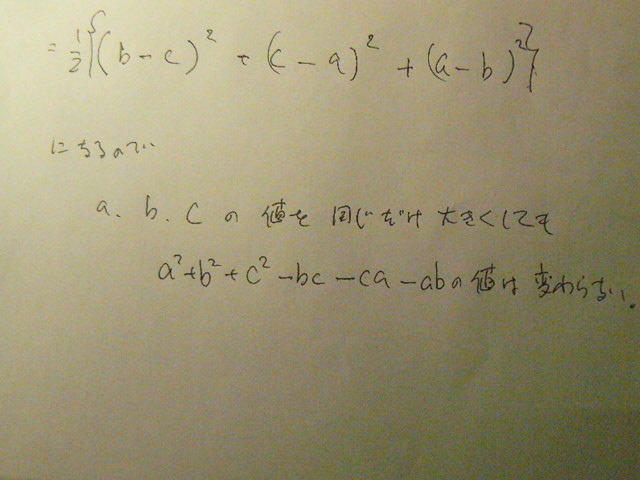 = 1/2 {(b-c)² + (c-a)² + (a-b)²}
になるので
a. b. c の 値を 同じだけ 大きくしても
a²+b²+c²-bc-ca-abの値は変わらない.